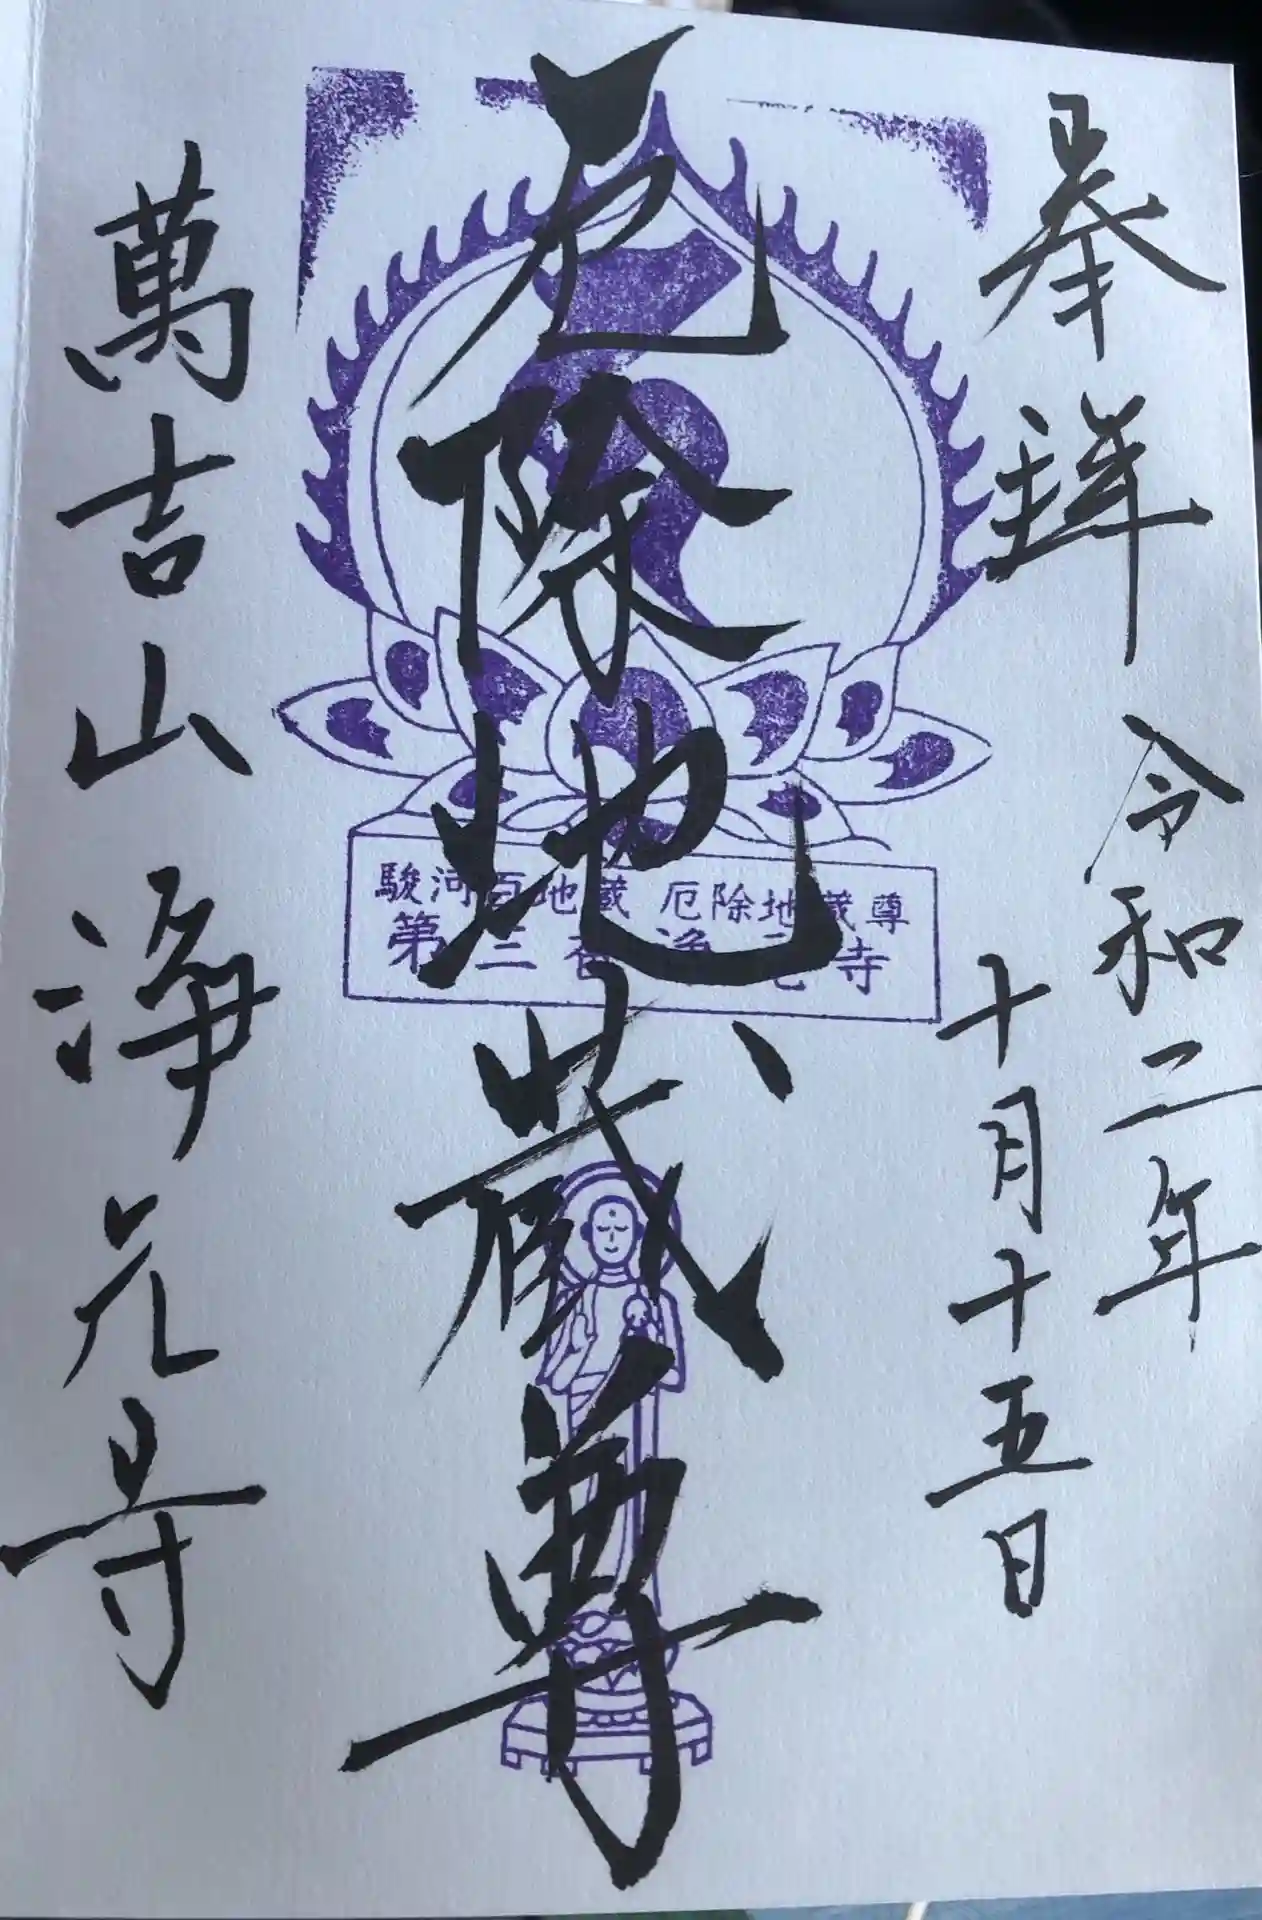 奉拝
令和二年
十月十五日
厄除地蔵尊
駿河百地蔵 厄除地蔵尊
第三番 浄元寺
萬吉山浄元寺